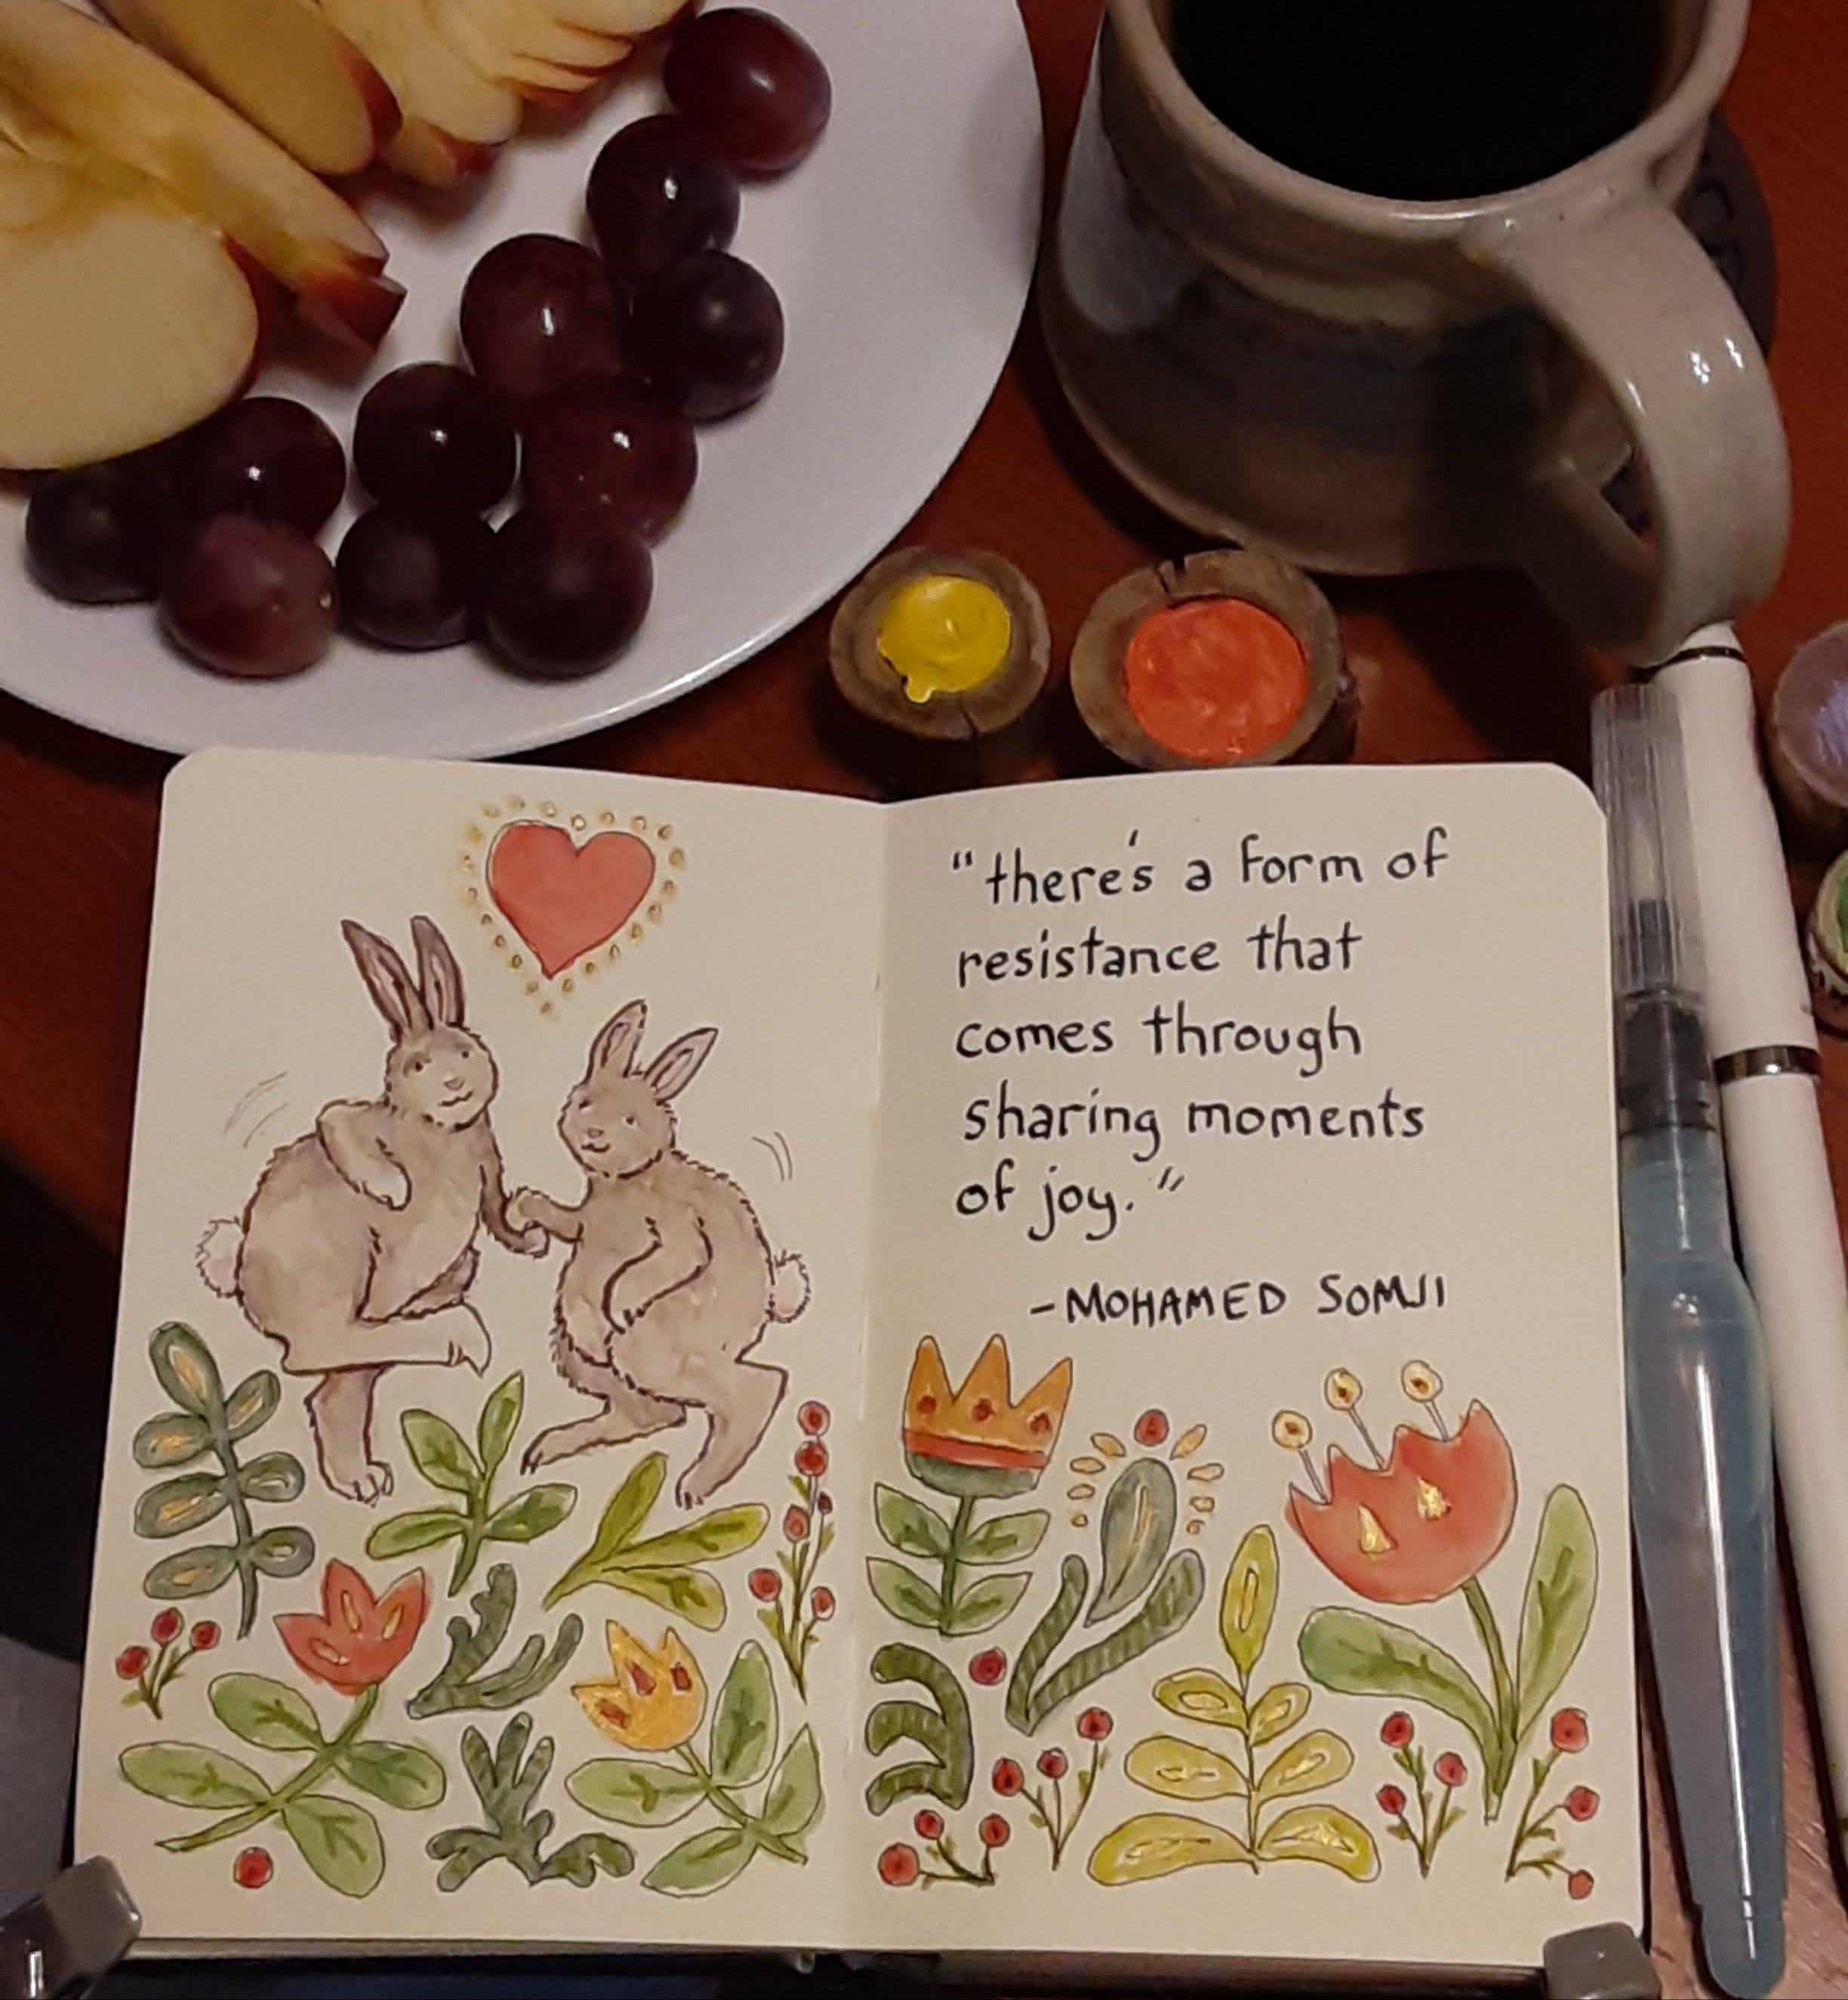 "there's a form of
resistance that
comes through
sharing moments
of joy."
-MOHAMED SOMJI